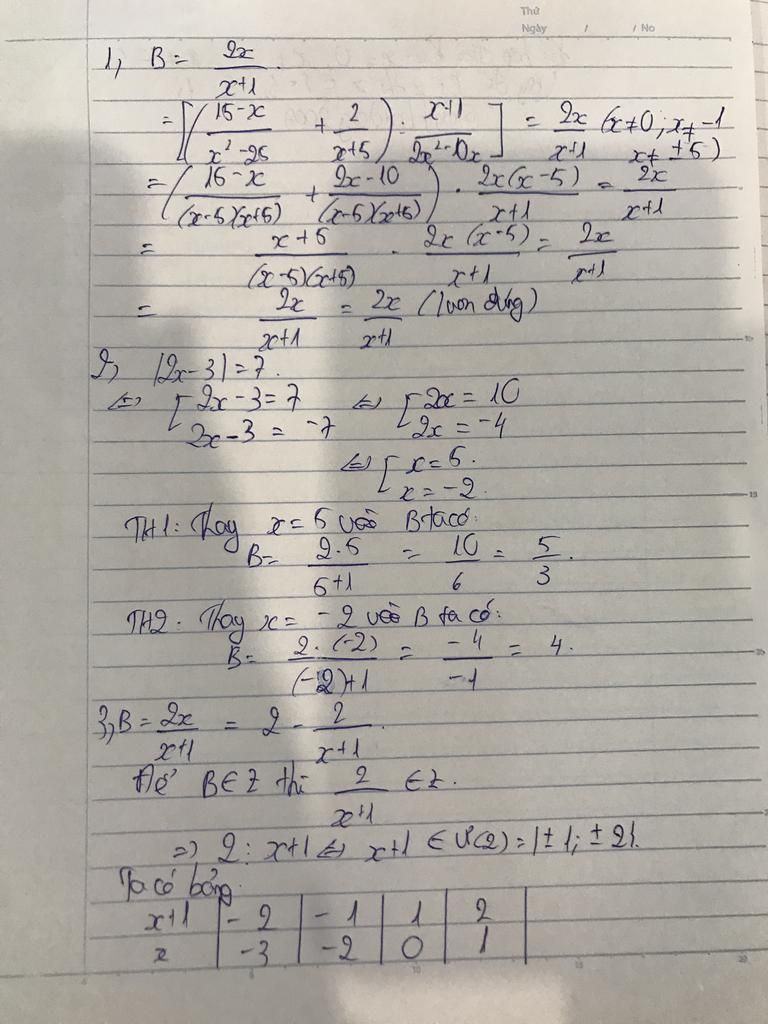 Thứ
Ngày / / No
1, B = 2x/(x+1).
= [((15-x)/(x²-25) + 2/(x+5)) : (x+1)/(2x²-10x)] = 2x/(x+1) (x≠0; x≠-1
x≠ ±5)
= ((15-x)/((x-5)(x+5)) + (2x-10)/((x-5)(x+5))) · 2x(x-5)/(x+1) = 2x/(x+1)
= (x+5)/((x-5)(x+5)) · 2x(x-5)/(x+1) = 2x/(x+1)
= 2x/(x+1) = 2x/(x+1) (luôn đúng)
2, |2x-3|=7.
⇔ [ 2x-3=7 ⇔ [ 2x = 10
2x-3 = -7 2x = -4
⇔ [ x=5.
x=-2.
TH1: Thay x=5 vào B ta có:
B= 2.5/(5+1) = 10/6 = 5/3.
TH2. Thay x= -2 vào B ta có:
B= 2.(-2)/((-2)+1) = -4/-1 = 4.
3, B= 2x/(x+1) = 2 - 2/(x+1).
Để B∈Z thì 2/(x+1) ∈Z.
⇒ 2 : x+1 ⇔ x+1 ∈ Ư(2)={±1; ±2}.
Ta có bảng:
x+1 | -2 | -1 | 1 | 2
x | -3 | -2 | 0 | 1